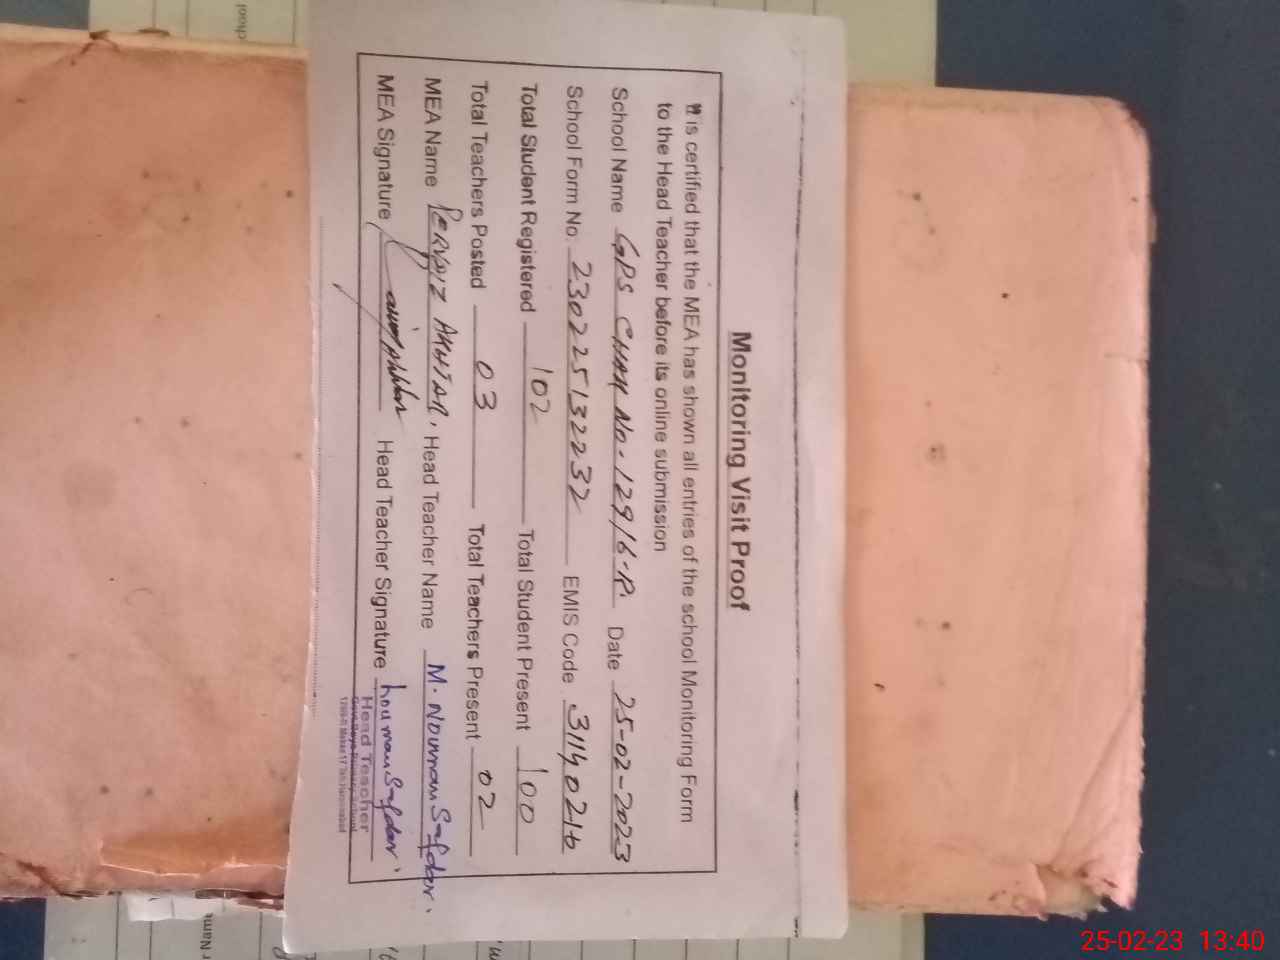 Monitoring Visit Proof
It is certified that the MEA has shown all entries of the school Monitoring Form
to the Head Teacher before its online submission
School Name GPS CHAK No. 129/6-R. Date 25-02-2023
School Form No. 230225132232 EMIS Code 31140216
Total Student Registered 102 Total Student Present 100
Total Teachers Posted 03 Total Teachers Present 02
MEA Name PERVAIZ AKHTAR, Head Teacher Name M. Nouman Safdar.
MEA Signature Head Teacher Signature Nouman Safdar.
Head Teacher
25-02-23 13:40